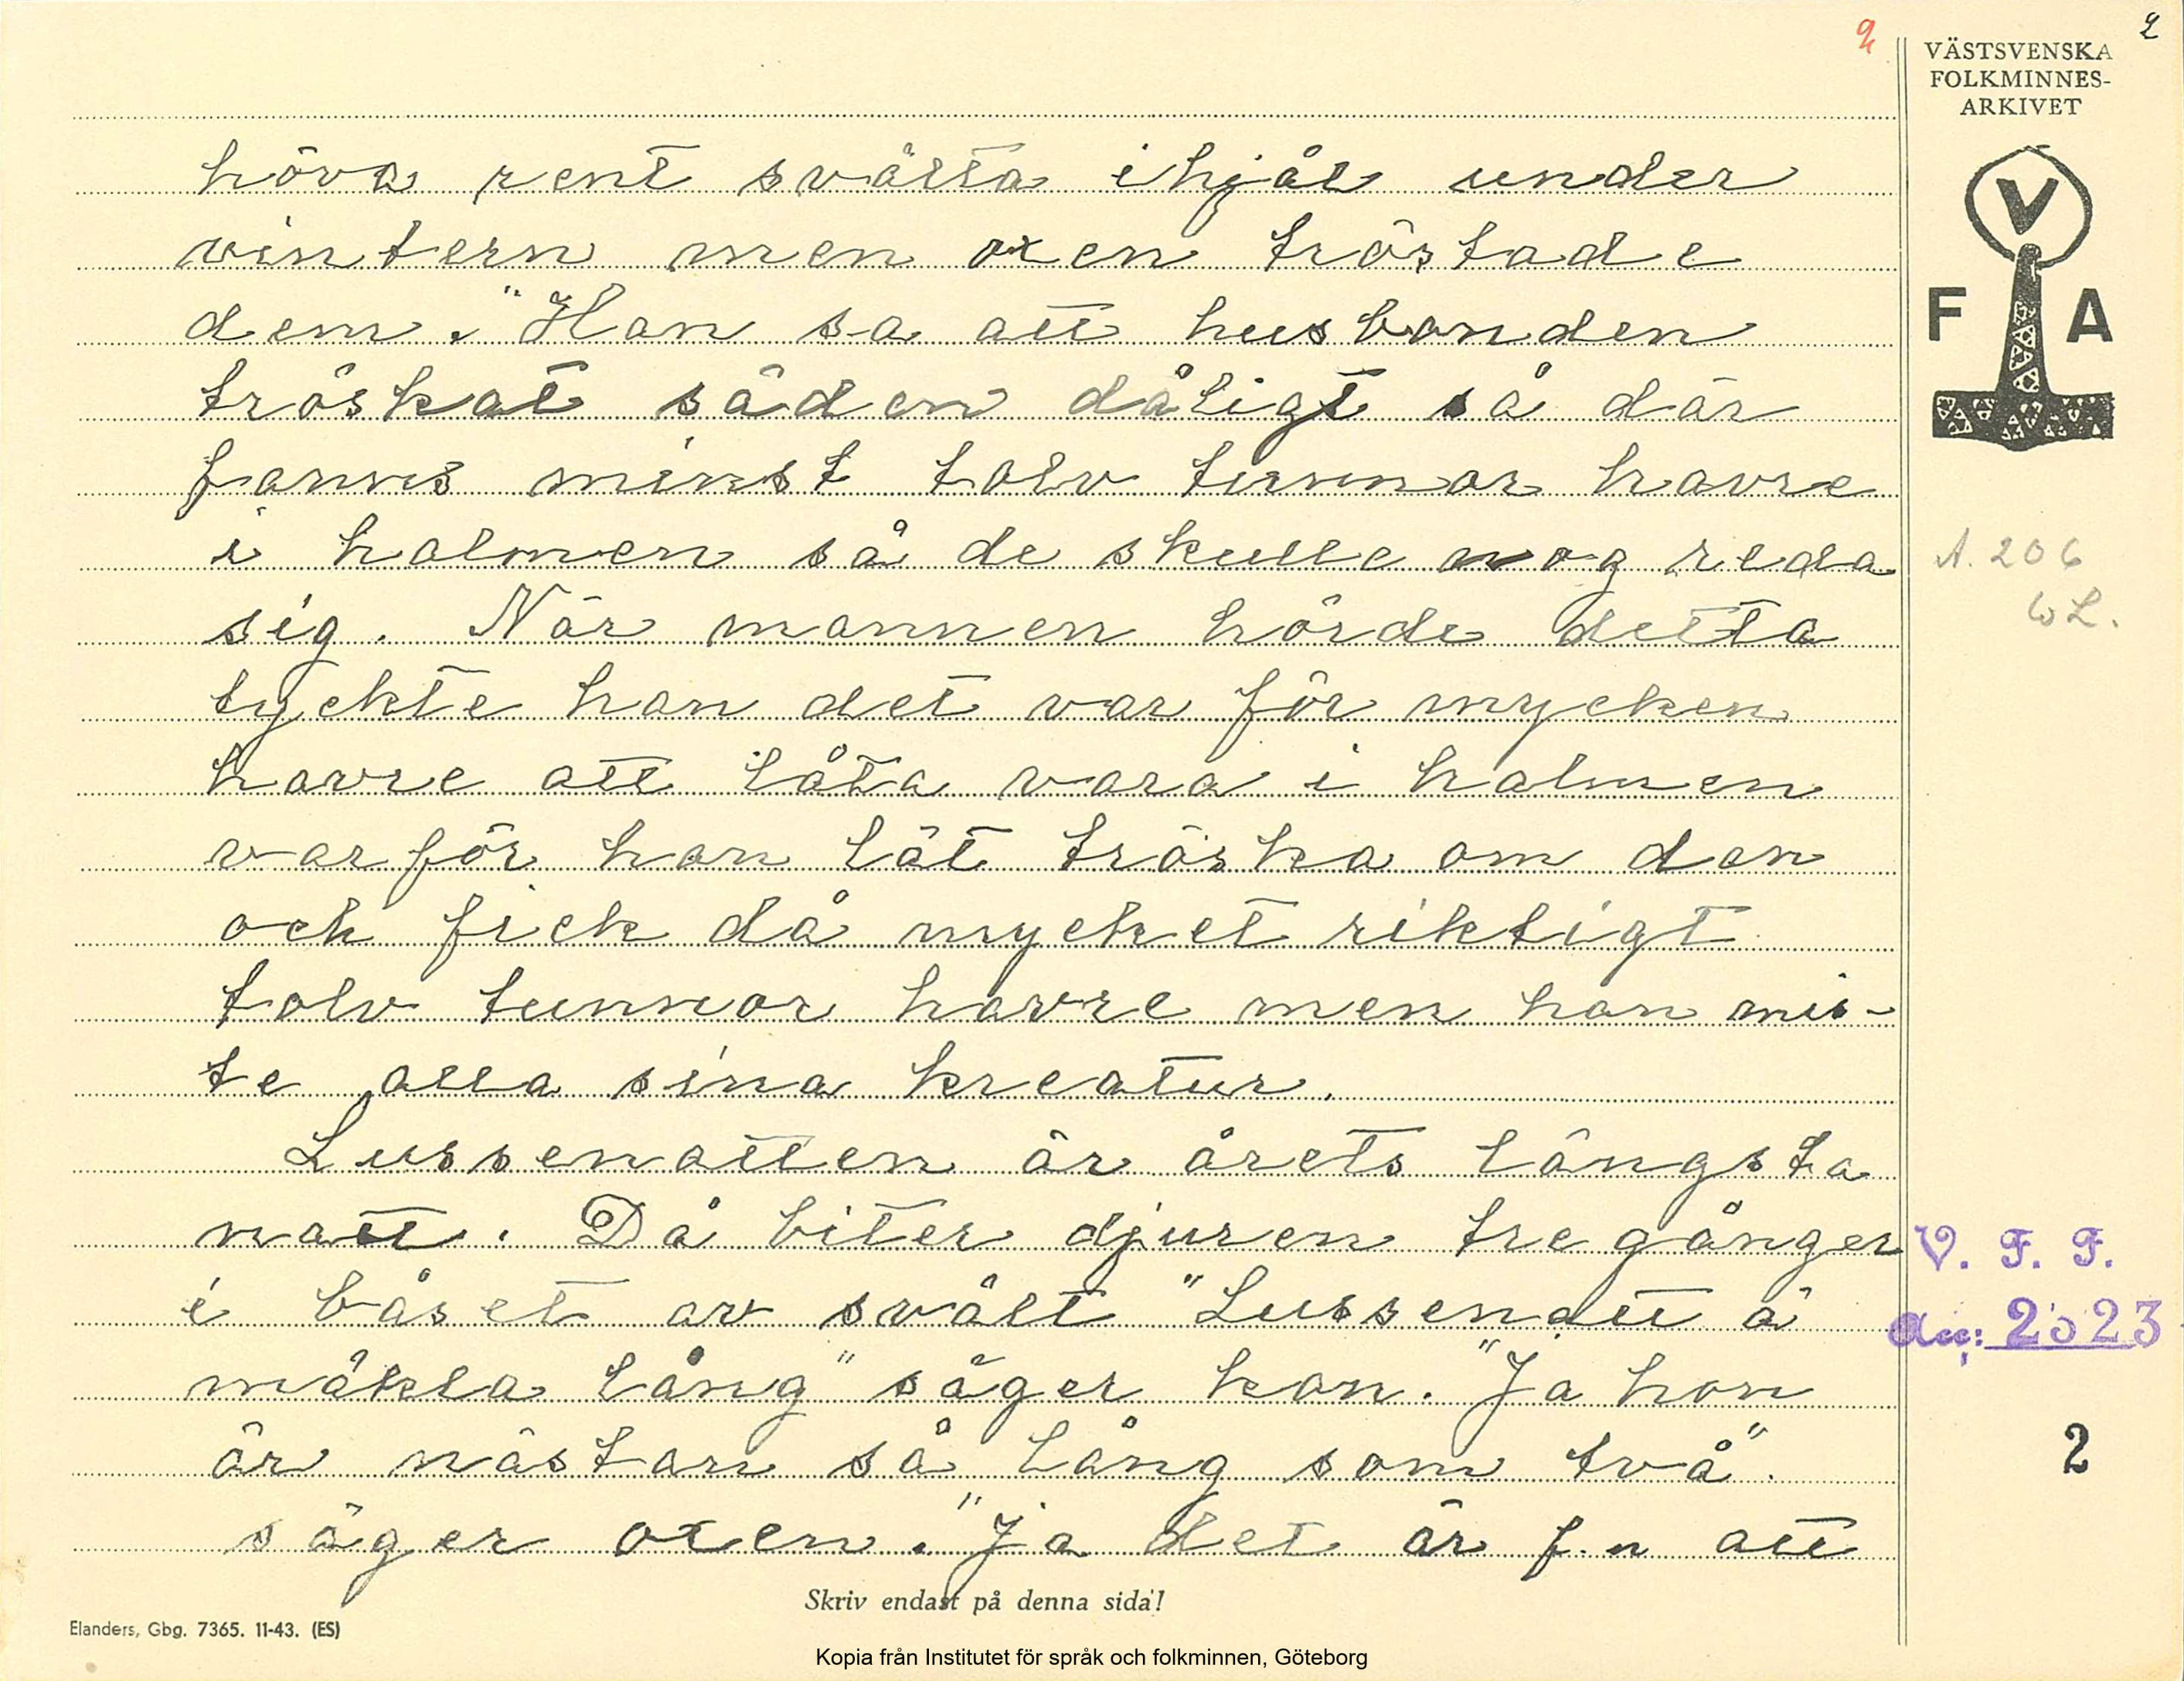 2
2
VÄSTSVENSKA
FOLKMINNES-
ARKIVET
V
F A
höva rent svälta ihjäl under
vintern men oxen tröstade
dem. "Han sa att husbonden
tröskat säden dåligt så där
fanns minst tolv tunnor havre
i halmen så de skulle nog reda
sig. När mannen hörde detta
tyckte han det var för mycken
havre att låta vara i halmen
varför han lät tröska om den
och fick då mycket riktigt
tolv tunnor havre men han mis-
te alla sina kreatur.
Lussenatten är årets längsta
natt. Då biter djuren tre gånger
i båset av svält "Lussenatt ä
mäkla lång" säger kon. "Ja hon
är nästan så lång som två".
säger oxen. "Ja det är f-n att
A. 206
WL.
V. F. F.
acc: 2523
2
Skriv endast på denna sida!
Elanders, Gbg. 7365. 11-43. (ES)
Kopia från Institutet för språk och folkminnen, Göteborg